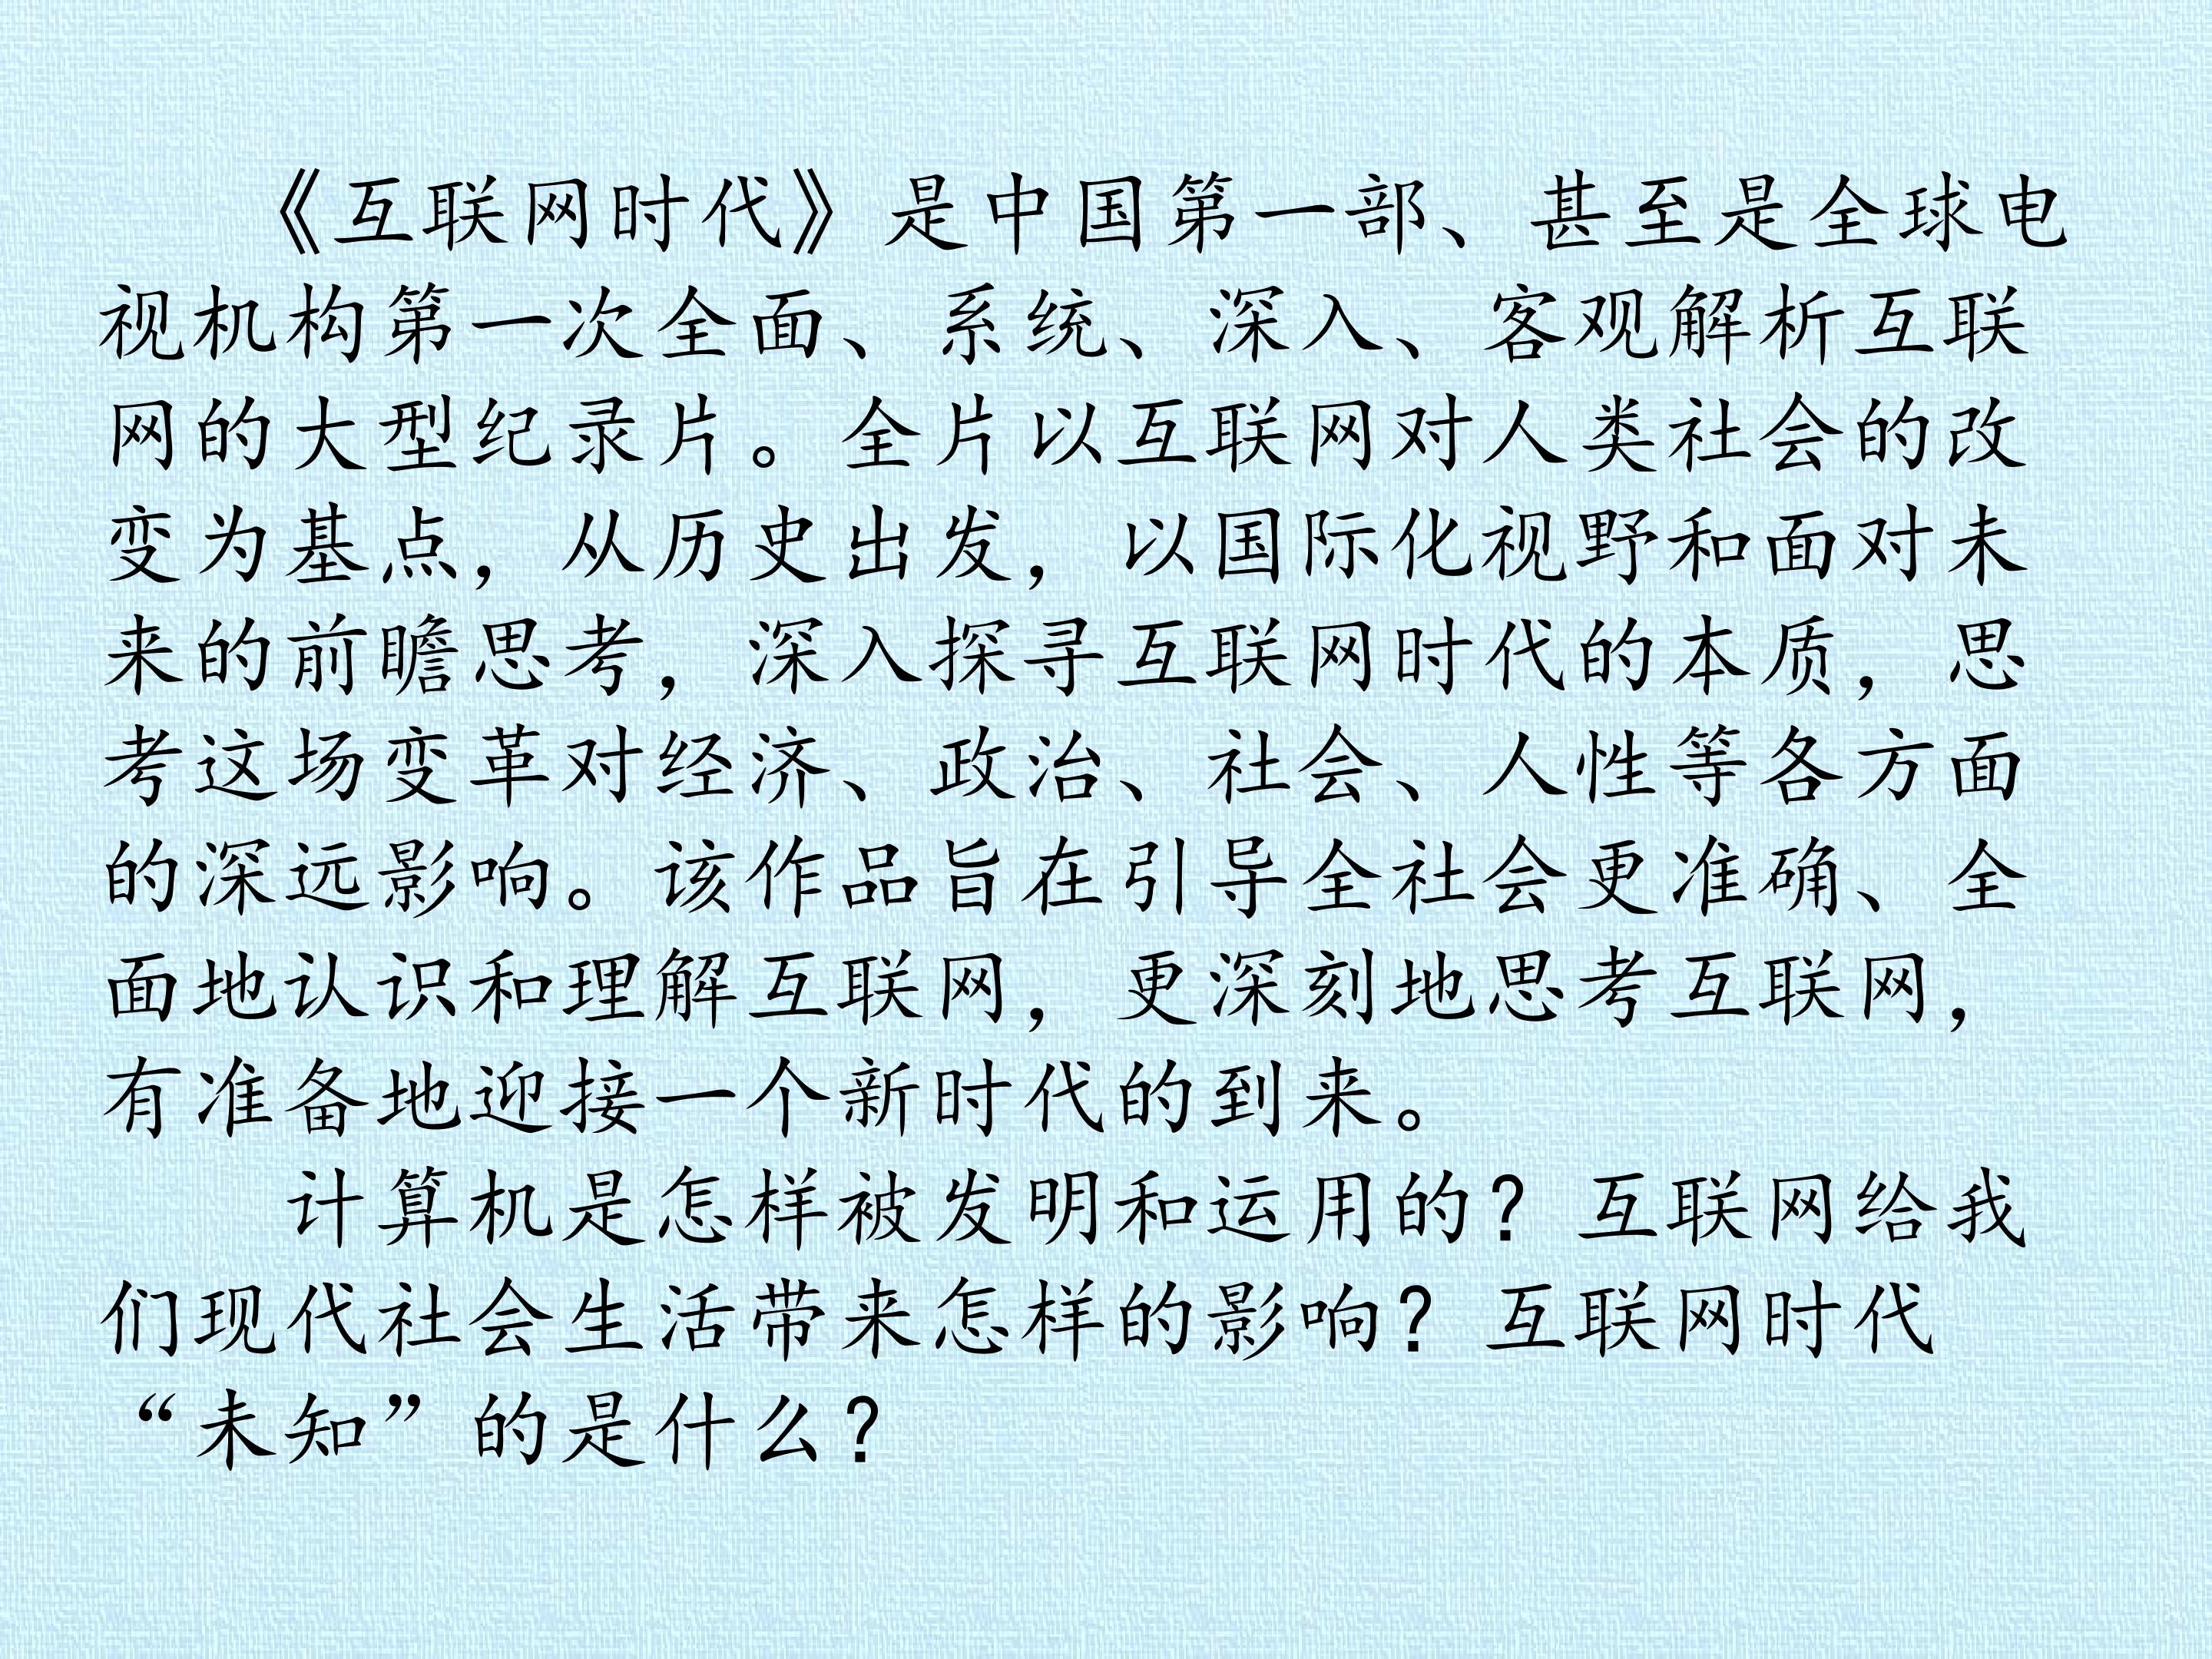 《互联网时代》是中国第一部、甚至是全球电
视机构第一次全面、系统、深入、客观解析互联
网的大型纪录片。全片以互联网对人类社会的改
变为基点，从历史出发，以国际化视野和面对未
来的前瞻思考，深入探寻互联网时代的本质，思
考这场变革对经济、政治、社会、人性等各方面
的深远影响。该作品旨在引导全社会更准确、全
面地认识和理解互联网，更深刻地思考互联网，
有准备地迎接一个新时代的到来。
计算机是怎样被发明和运用的？互联网给我
们现代社会生活带来怎样的影响？互联网时代
“未知”的是什么？